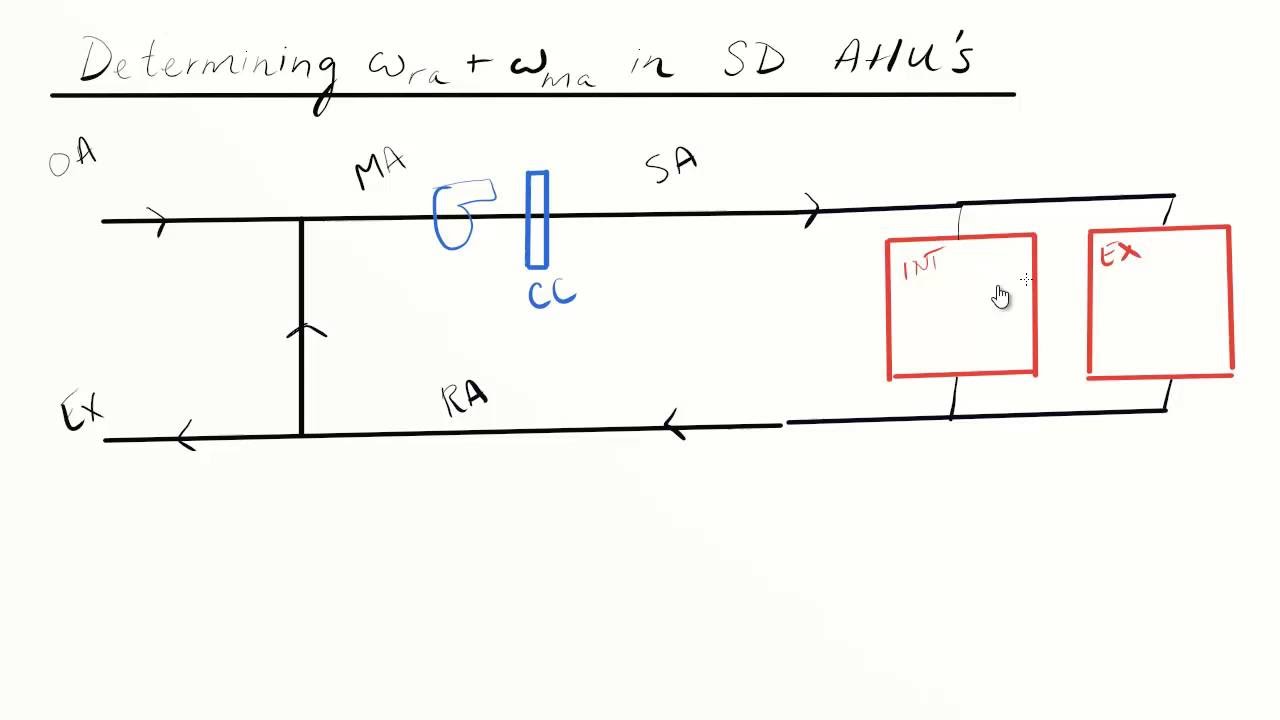 Determining ωra + ωma in SD AHU's
OA
MA
SA
INT
EX
CC
EX
RA